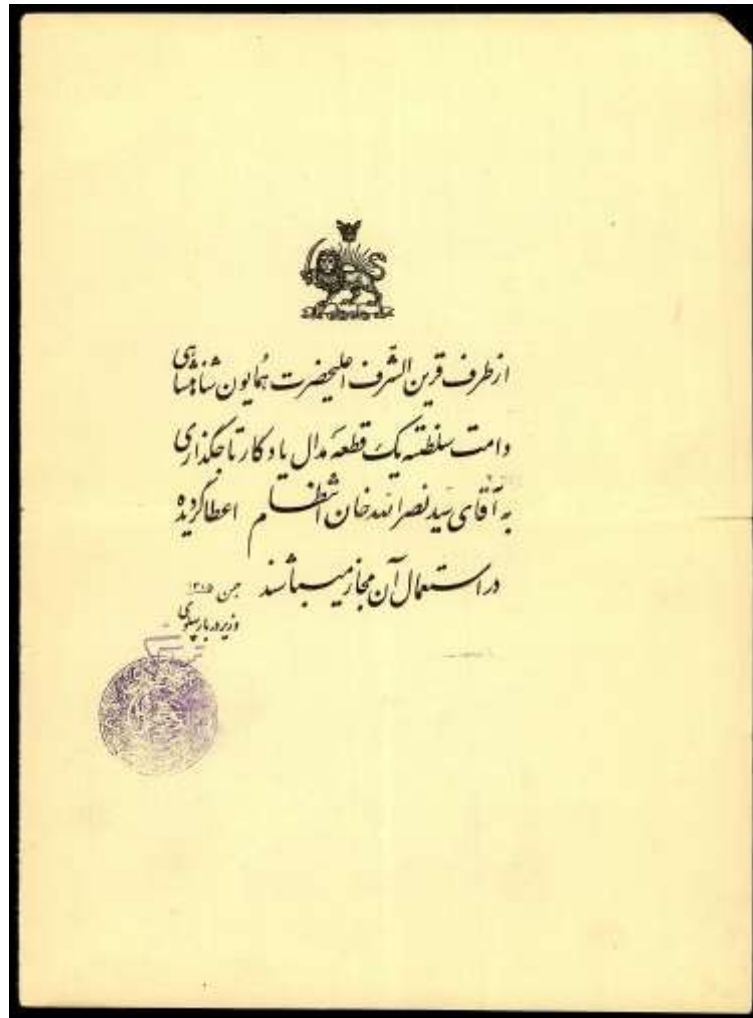 از طرف قرین الشرف اعلیحضرت همایون شاهنشاهی
دامت سلطنته یک قطعه مدال یادگار تاجگذاری
به آقای سید نصراللہ خان انتظام اعطا گردیده
در استعمال آن مجاز میباشند
وزیر دربار پهلوی